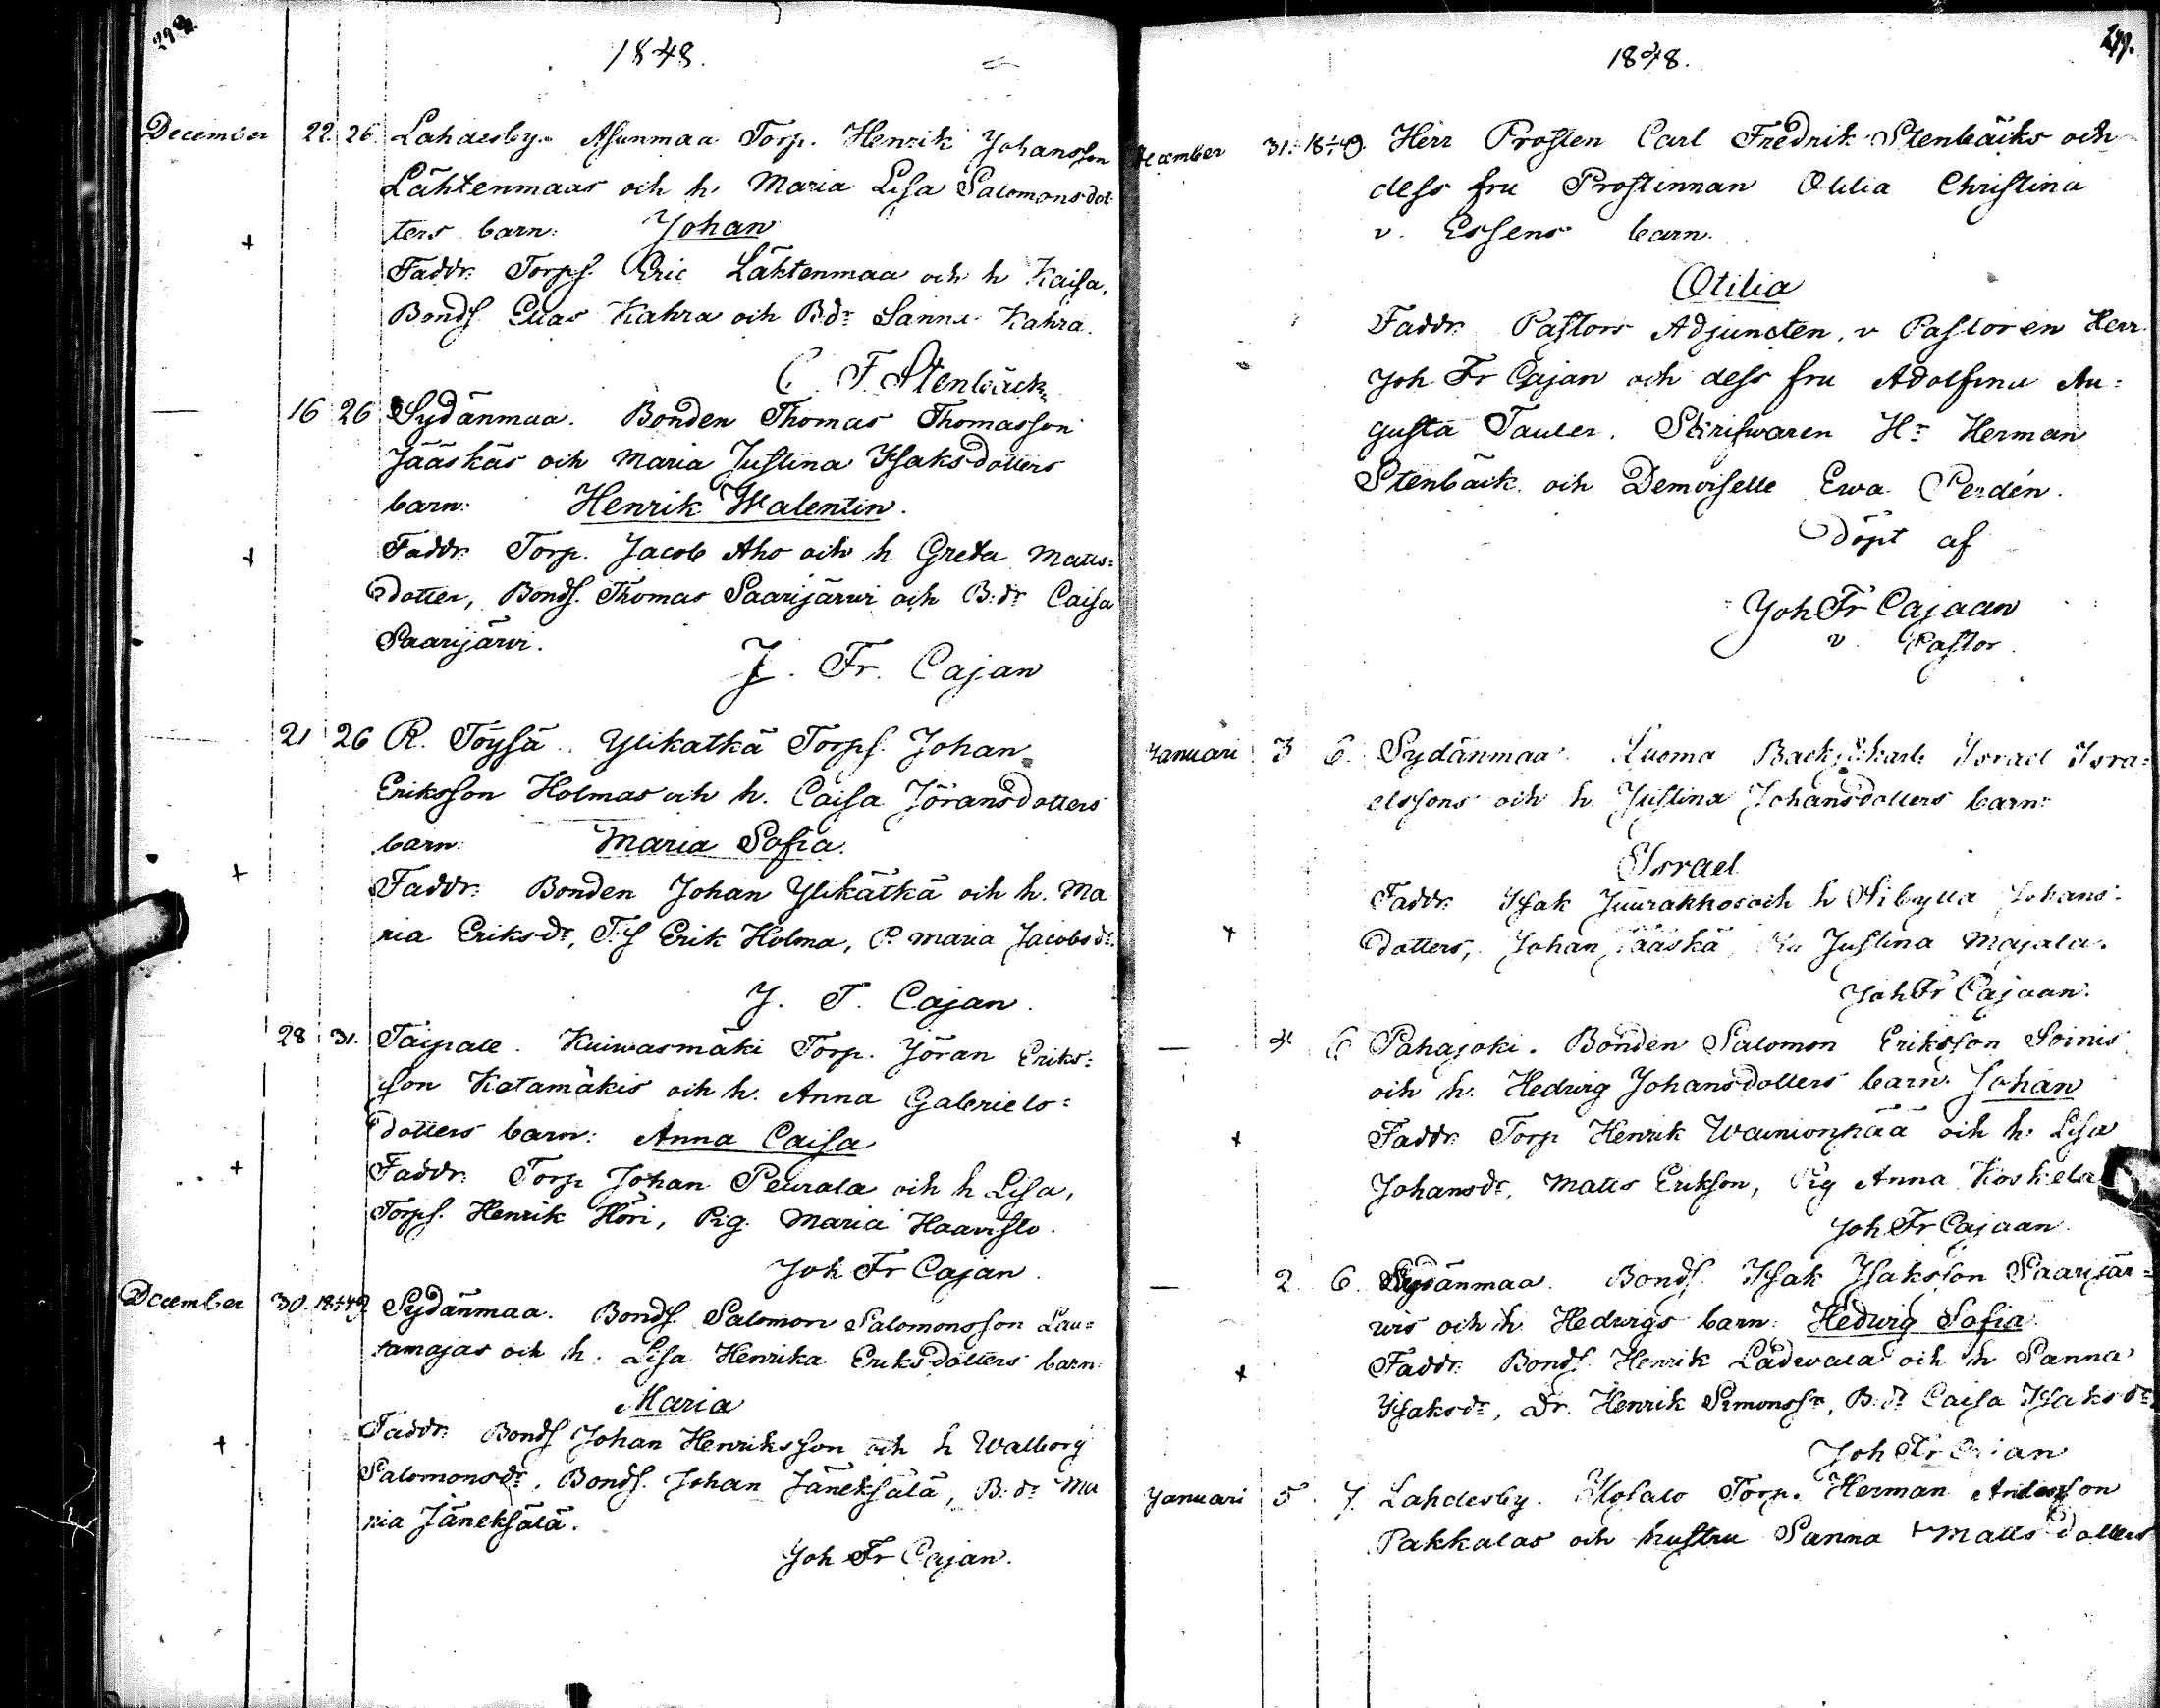 298.
1848.
December 22. 26. Lahdesby. Asunmaa Torp. Henrik Johansson
Lähtenmaas och h. Maria Lisa Salomonsdot
ters barn: Johan
Faddr. Torps. Eric Lähtenmaa och h Kaisa,
Bonds. Elias Kahra och B.dr Sanna Kahra.
C. F. Stenbäck
— 16 26 Sydänmaa. Bonden Thomas Thomasson
Jääskäs och Maria Justina Isaksdotters
barn: Henrik Walentin.
Faddr. Torp. Jacob Aho och h Greta Matts=
dotter, Bonds. Thomas Saarijärwi och B:dr Caisa
Saarijärvi.
J. Fr. Cajan
21 26 R. Töysä. Ylikatkä Torps. Johan
Eriksson Holmas och h. Caisa Jöransdotters
barn: Maria Sofia.
Faddr. Bonden Johan Ylikätkä och h. Ma
ria Eriksdr, T.s Erik Holma, P. Maria Jacobsdr.
J. F. Cajan.
28 31. Taipale. Kuiwasmäki Torp. Jöran Eriks=
son Katamäkis och h. Anna Gabriels=
dotters barn: Anna Caisa
Faddr. Torp Johan Peurala och h Lisa,
Torps. Henrik Höri, Pig. Maria Haavisto.
Joh Fr Cajan.
December 30. 18 1/1 49 Sydänmaa. Bonds. Salomon Salomonsson Lau=
tamajas och h. Lisa Henrika Eriksdotters barn:
Maria
Faddr. Bonds Johan Henriksson och h Walborg
Salomonsdr, Bonds. Johan Jäneksälä, B:dr Ma
ria Jäneksälä.
Joh Fr Cajan.
299.
1848.
December 31. 18 1/1 49. Herr Prosten Carl Fredrik Stenbäcks och
dess fru Prostinnan Otilia Christina
v. Essens barn.
Otilia
Faddr. Pastors Adjuncten, v Pastoren Herr
Joh Fr Cajan och dess fru Adolfina Au=
gusta Tauler. Hr Herman
Stenbäck och Demoiselle Ewa Perdén.
Döpt af
Joh Fr Cajaan
v. Pastor.
Januari 3 6. Sydänmaa. Luoma Backstukarl Israel Isra=
elssons och h. Justina Johansdotters barn:
Israel
Faddr. Isak Juurakkos och h Sibylla Johans=
dotters, Johan Jääskä, Justina Majala.
Joh Fr Cajaan.
— 4 6 Pahajoki. Bonden Salomon Eriksson Soinis
och h. Hedvig Johansdotters barn. Johan
Faddr. Torp Henrik Wainionpää och h. Lisa
Johansdr, Matts Erikson, Pig Anna Koskela
Joh Fr Cajaan.
— 2. 6. Sydänmaa. Bonds. Isak Isaksson Saarijär=
wis och h Hedvigs barn: Hedvig Sofia
Faddr. Bonds. Henrik Ladwala och h Sanna
Isaksdr, Dr. Henrik Simonssn, B.dr Caisa Isaksdr
Joh Fr Cajan
Januari 5. 7. Lahdesby. Torp. Herman Andersson
Pakkalas och hustru Sanna Mattsdotters